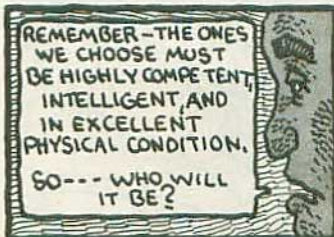 REMEMBER-THE ONES
WE CHOOSE MUST
BE HIGHLY COMPETENT,
INTELLIGENT, AND
IN EXCELLENT
PHYSICAL CONDITION.
SO--- WHO WILL
IT BE?